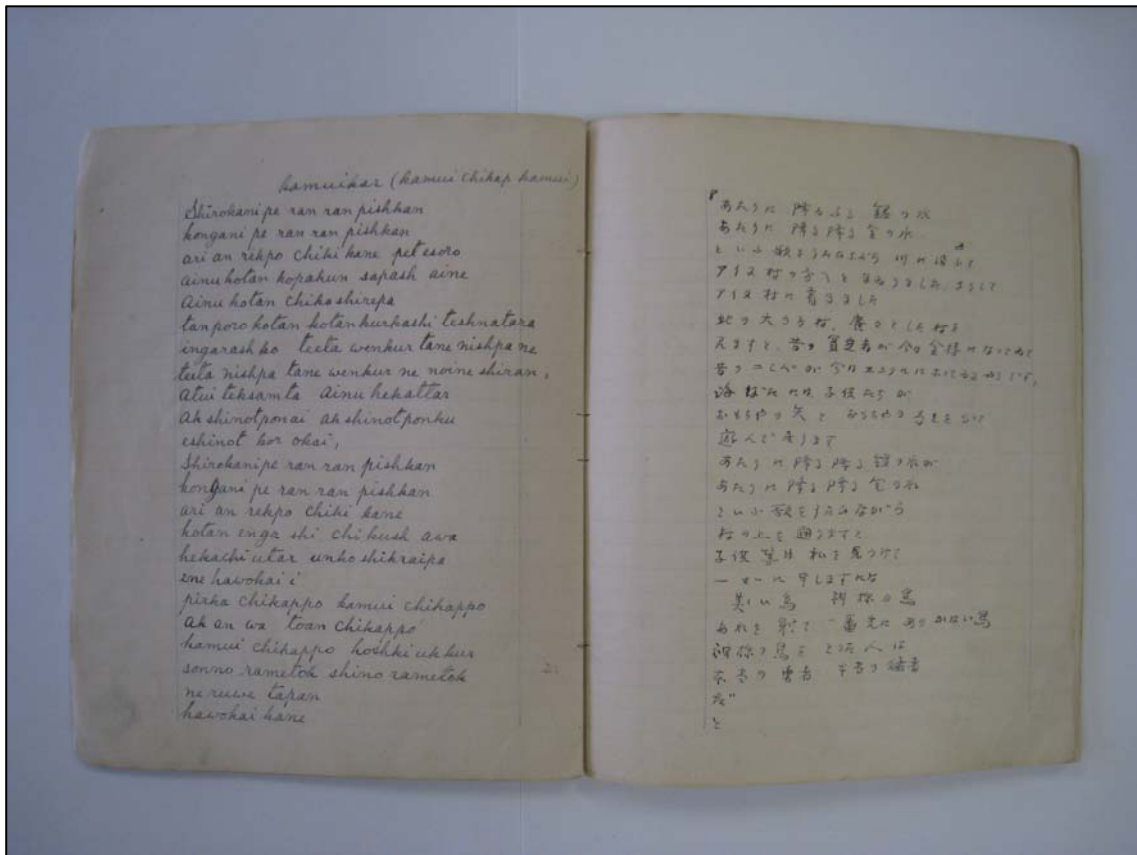 kamuikar (kamui chikap kamui)
Shirokanipe ran ran pishkan
kongani pe ran ran pishkan
ari an rekpo chiki kane pet esoro
ainu kotan kopakun sapash aine
Ainu kotan chikoshirepa
tanporo kotan kotankurkashi teshnatara
ingarash ko teeta wenkur tane nishpa ne
teeta nishpa tane wenkur ne noine shiran,
atui teksamta ainu hekattar
Ak shinotponai ak shinotponku
eshinot kor okai,
Shirokanipe ran ran pishkan
kongani pe ran ran pishkan
ari an rekpo chiki kane
kotan enga shi chi kush awa
hekachi utar unko shikraipa
ene hawokai i
pirka chikappo kamui chikappo
Ak an wa toan chikappo
kamui chikappo hoshki ukkur
sonno rametok shino rametok
ne ruwe tapan
hawokai kane
2.
あたりに 降る 銀の水
あたりに 降る降る 金の水
といふ 歌を うたひながら 川に沿ふて
アイヌ村の
アイヌ村に 着きました
此の大きな村,
見ますと、昔の貧乏者が今お金持になってゐて
昔の
海ばたには 子供たちが
おもちゃの矢と おもちゃの弓を
遊んで居ります
あたりに 降る降る 銀の水
あたりに 降る降る 金の水
といふ歌をうたひながら
村の上を 通りますと
子供等は 私を見つけて
申しますには
美い鳥 神様の鳥
あれを 射て 一番先に 鳥
神様の鳥を とった人は
本当の勇者 本当の強者
だ"
と